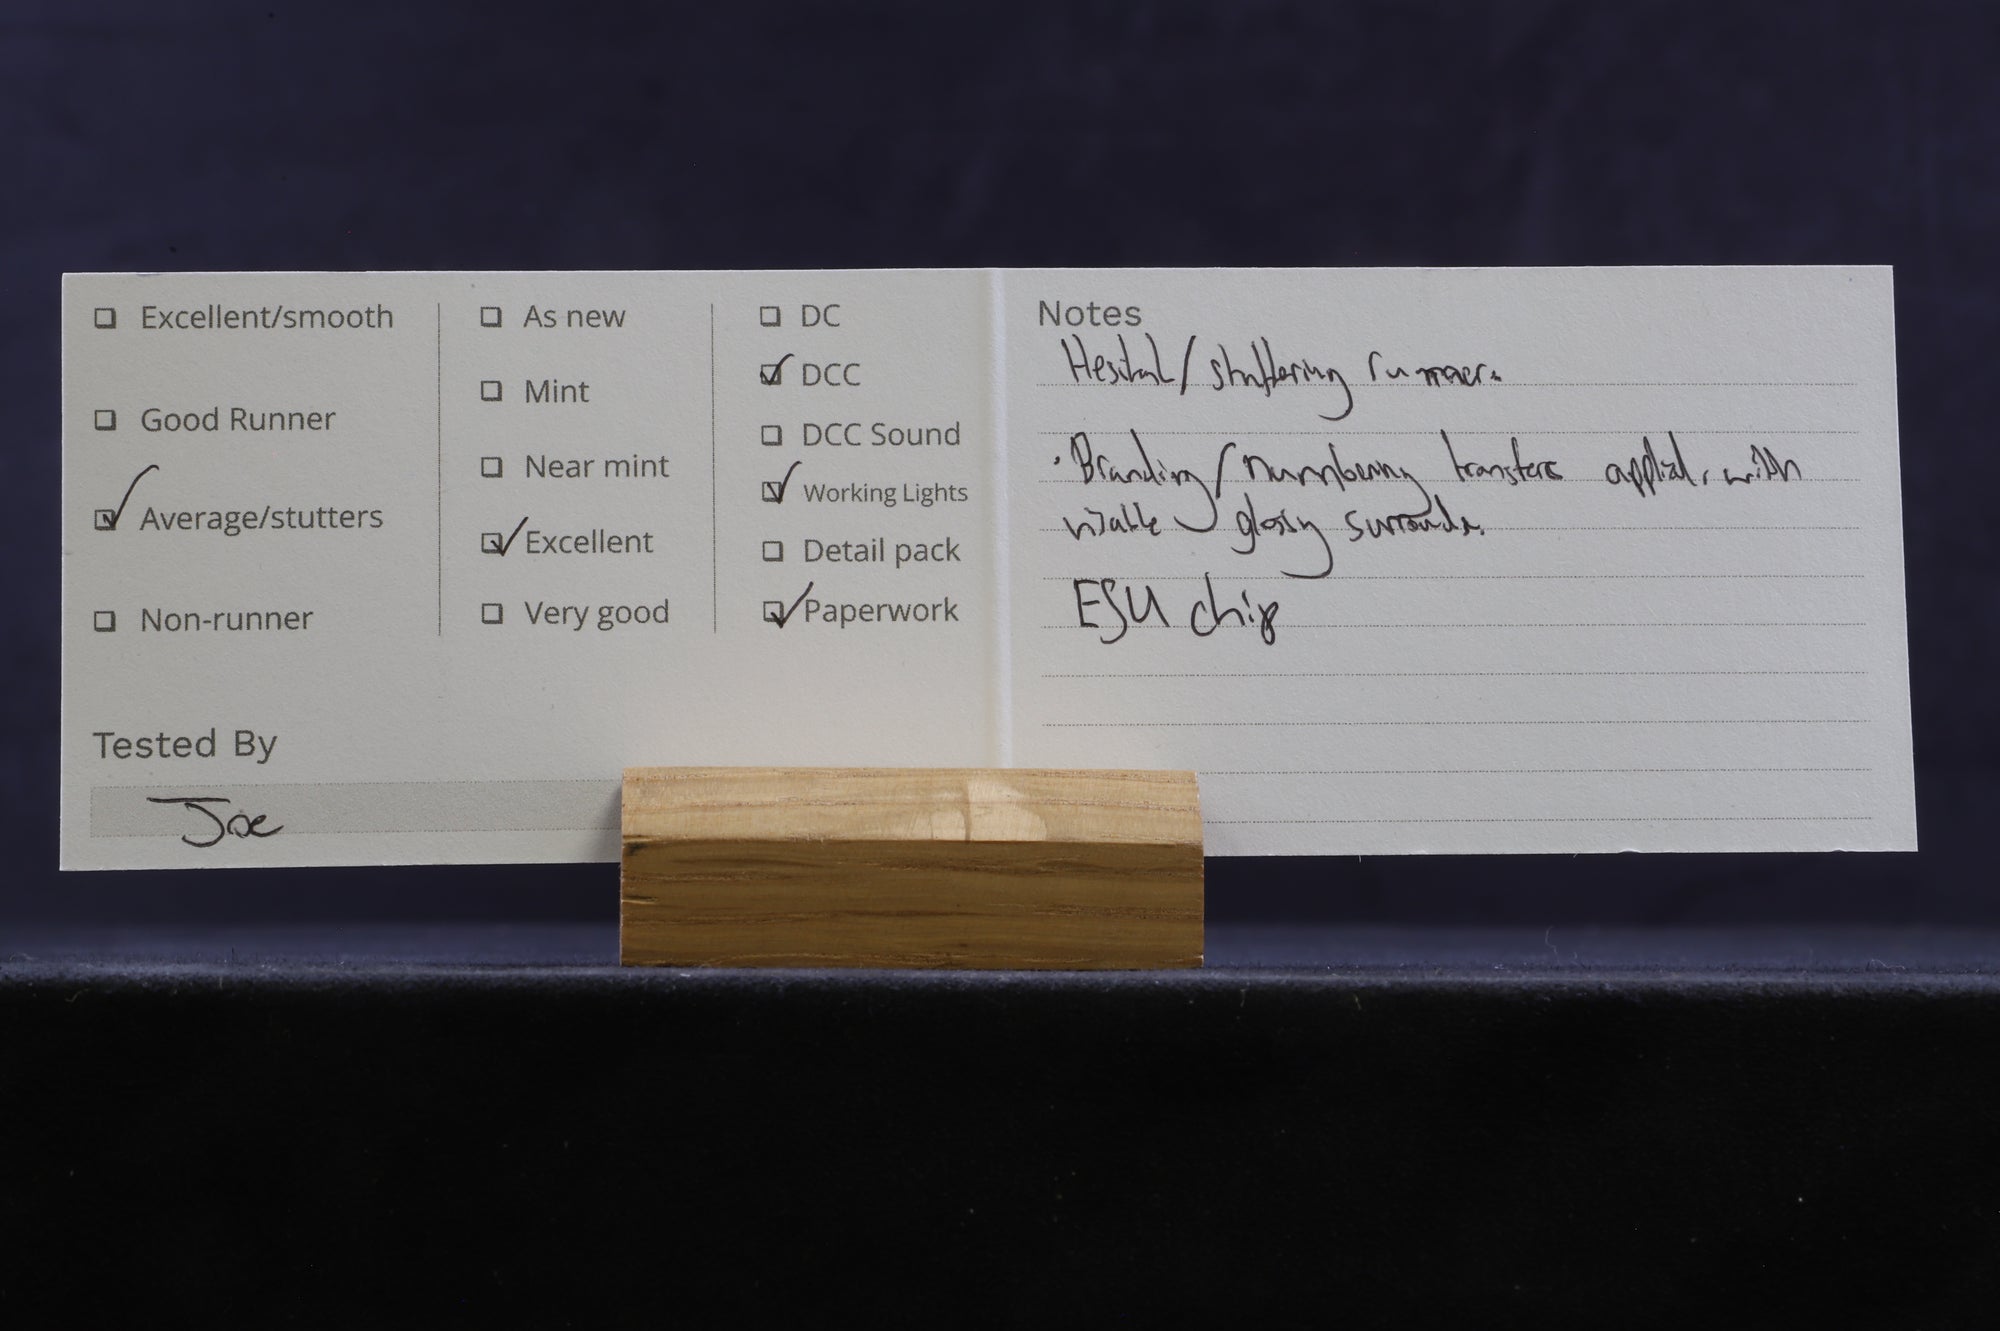 Excellent/smooth
Good Runner
Average/stutters
Non-runner
As new
Mint
Near mint
Excellent
Very good
DC
DCC
DCC Sound
Working Lights
Detail pack
Paperwork
Tested By
Joe
Notes
Hesitant/stuttering runner.
· Branding/numbering transfers applied, with
visable glossy surrounds.
ESU chip